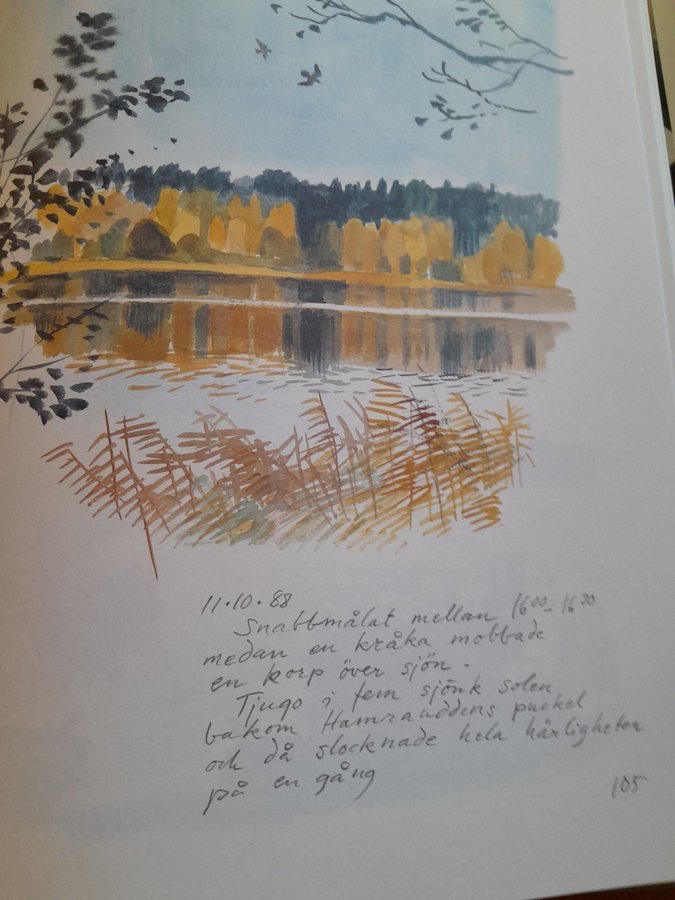 11·10·88
Snabbmålat mellan 16⁰⁰–16³⁰
medan en kråka mobbade
en korp över sjön.
Tjugo i fem sjönk solen
bakom Hamrauddens puckel
och då slocknade hela härligheten
på en gång
105